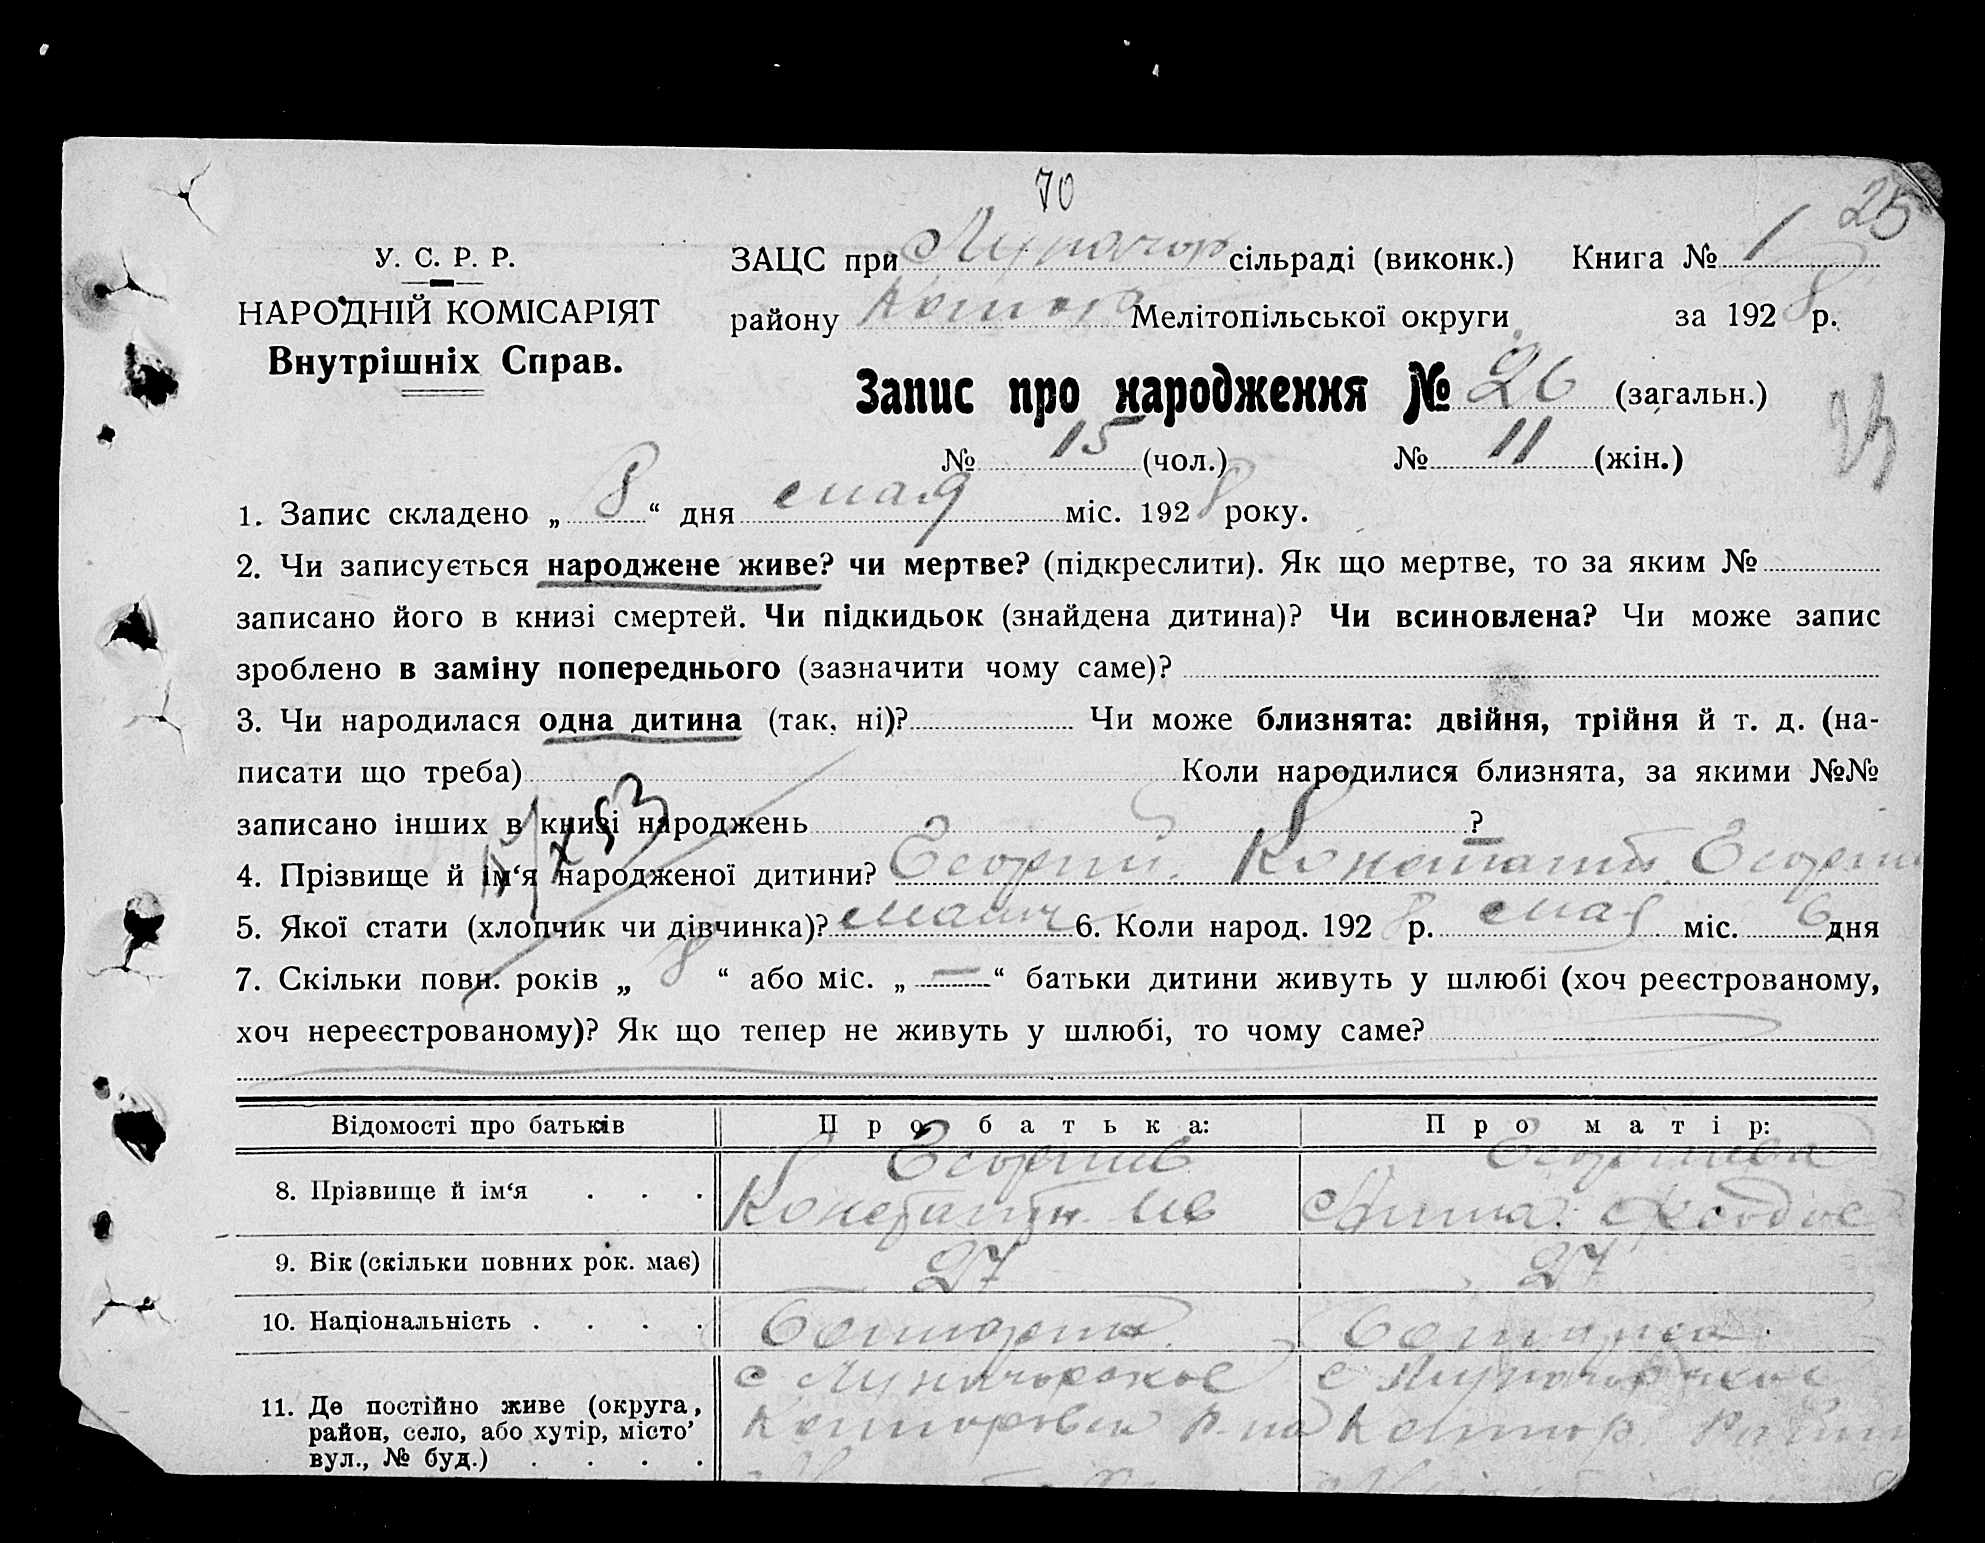 70
25
У. С. Р. Р.
НАРОДНІЙ КОМІСАРІЯТ
Внутрішніх Справ.
ЗАЦС при Луначар сільраді (виконк.) Книга № 1
району Мелітопільської округи за 1928 р.
Запис про народження № 26 (загальн.)
№ 15 (чол.) № 11 (жін.)
1. Запис складено „ 8 “ дня мая міс. 1928 року.
2. Чи записується народжене живе? чи мертве? (підкреслити). Як що мертве, то за яким №
записано його в книзі смертей. Чи підкидьок (знайдена дитина)? Чи всиновлена? Чи може запис
зроблено в заміну попереднього (зазначити чому саме)?
3. Чи народилася одна дитина (так, ні)? Чи може близнята: двійня, трійня й т. д. (на-
писати що треба) Коли народилися близнята, за якими №№
записано інших в книзі народжень ?
4. Прізвище й ім‘я народженої дитини? Георгий Константи Георги
5. Якої стати (хлопчик чи дівчинка)? 6. Коли народ. 1928 р. мая міс. 6 дня
7. Скільки повн. років „ 8 “ або міс. „ — “ батьки дитини живуть у шлюбі (хоч реєстрованому,
хоч нереєстрованому)? Як що тепер не живуть у шлюбі, то чому саме?
Відомості про батьків Про батька: Про матір:
8. Прізвище й ім‘я . . . Георгиев Константин Ив Георгиева Анна Феодос
9. Вік (скільки повних рок. має) 27 27
10. Національність . . . . Болгарин Болгарка
11. Де постійно живе (округа, с Луначарское с Луначарское
район, село, або хутір, місто’
вул., № буд.) . . . .